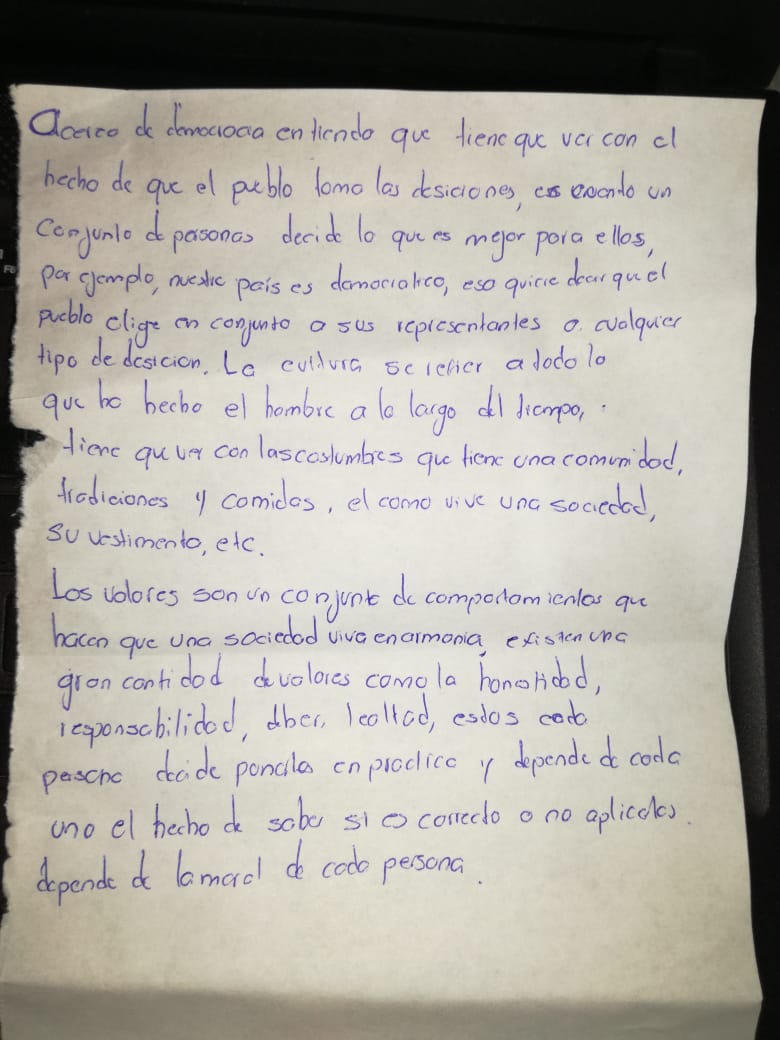 Acerca de democracia entiendo que tiene que ver con el
hecho de que el pueblo toma las desiciones, es cuando un
Conjunto de personas decide lo que es mejor para ellos,
por ejemplo, nuestro país es democratico, eso quiere decir que el
pueblo elige en conjunto a sus representantes o cualquier
tipo de desicion. La cultura se refier a todo lo
que ha hecho el hombre a lo largo del tiempo,
tiene que ver con las costumbres que tiene una comunidad,
tradiciones y comidas, el como vive una sociedad,
su vestimenta, etc.
Los valores son un conjunto de comportamientos que
hacen que una sociedad viva en armonia, existen una
gran cantidad de valores como la honestidad,
responsabilidad, deber, lealtad, estos cada
persona decide ponerlos en practica y depende de cada
uno el hecho de saber si es correcto o no aplicarlos.
depende de la moral de cada persona.